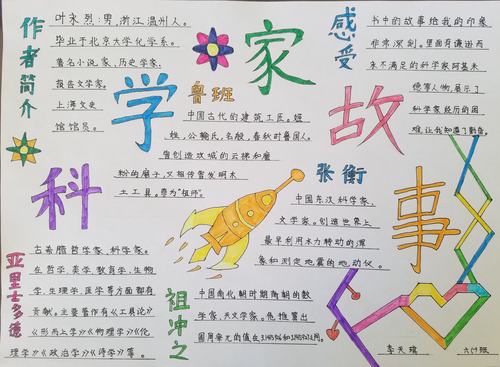 作者简介
叶永烈:男,浙江温州人。
毕业于北京大学化学系。
著名小说家、历史学家、
报告文学家。
上海文史
馆馆员。
科学家故事
鲁班
中国古代的建筑工匠。姬
姓,公输氏,名般,春秋时鲁国人。
曾创造攻城的云梯和磨
粉的磨子,又相传曾发明木
土工具。尊为"祖师"。
感受
书中的故事给我的印象
非常深刻。里面有谦逊而
永不满足的科学家阿基米
德等人物,展示了
科学家经历的困
难,让我知道了勤奋。
张衡
中国东汉科学家、
文学家。创造世界上
最早利用水力转动的浑
象和测定地震的地动仪。
亚里士多德
古希腊哲学家、科学家。
在哲学、美学、教育学、生物
学、生理学、医学等方面都有
贡献。主要著作有《工具论》
《形而上学》《物理学》《伦
理学》《政治学》《诗学》等。
祖冲之
中国南北朝时期南朝的数
学家、天文学家。他推算出
圆周率
六(1)班